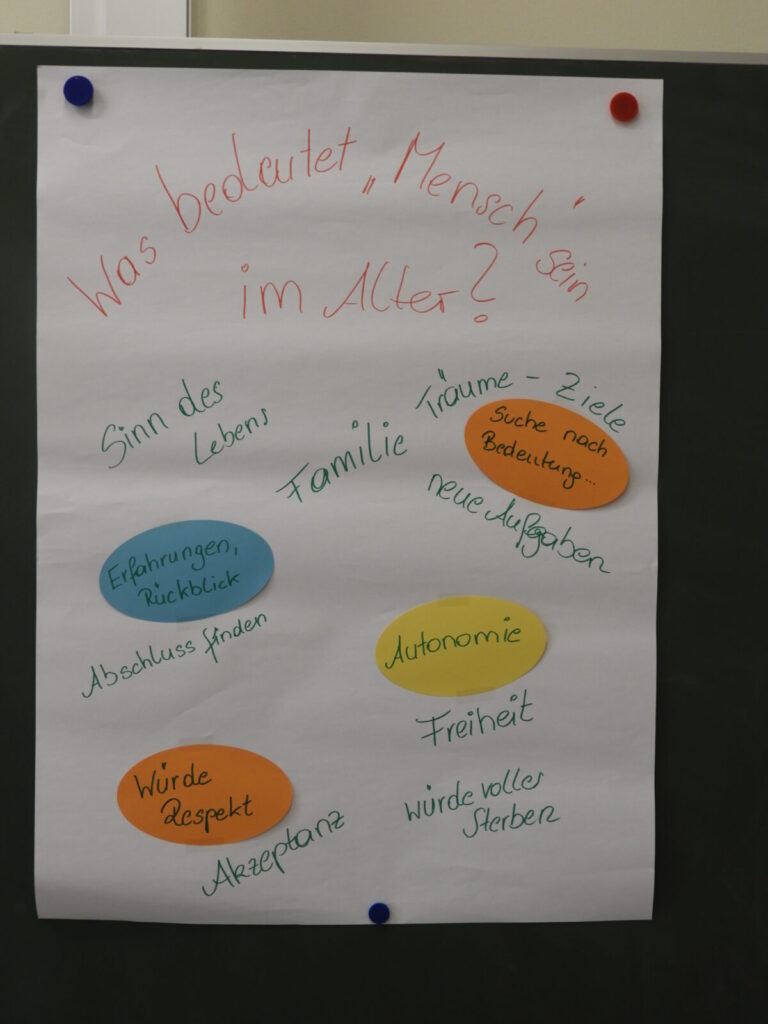 Was bedeutet „Mensch" sein
im Alter?
Sinn des
Lebens
Familie
Träume - Ziele
Suche nach
Bedeutung...
neue Aufgaben
Erfahrungen,
Rückblick
Abschluss finden
Autonomie
Freiheit
Würde
Respekt
Akzeptanz
würdevolles
Sterben